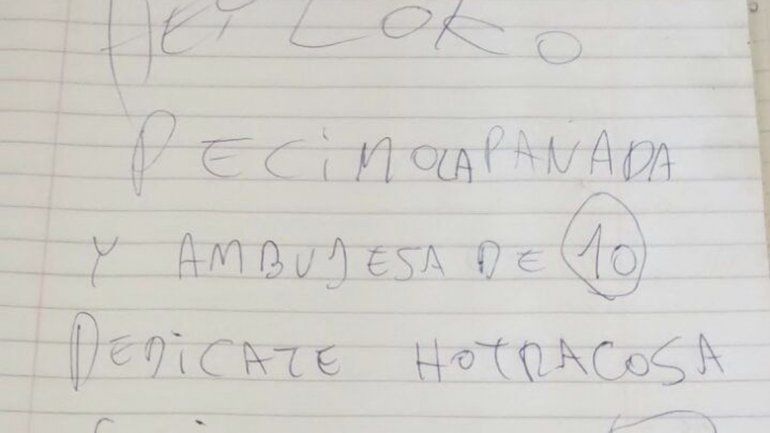 LOKo
PECiMOLAPANADA
Y AMBUJESA DE 10
DEDiCATE HOTRACOSA